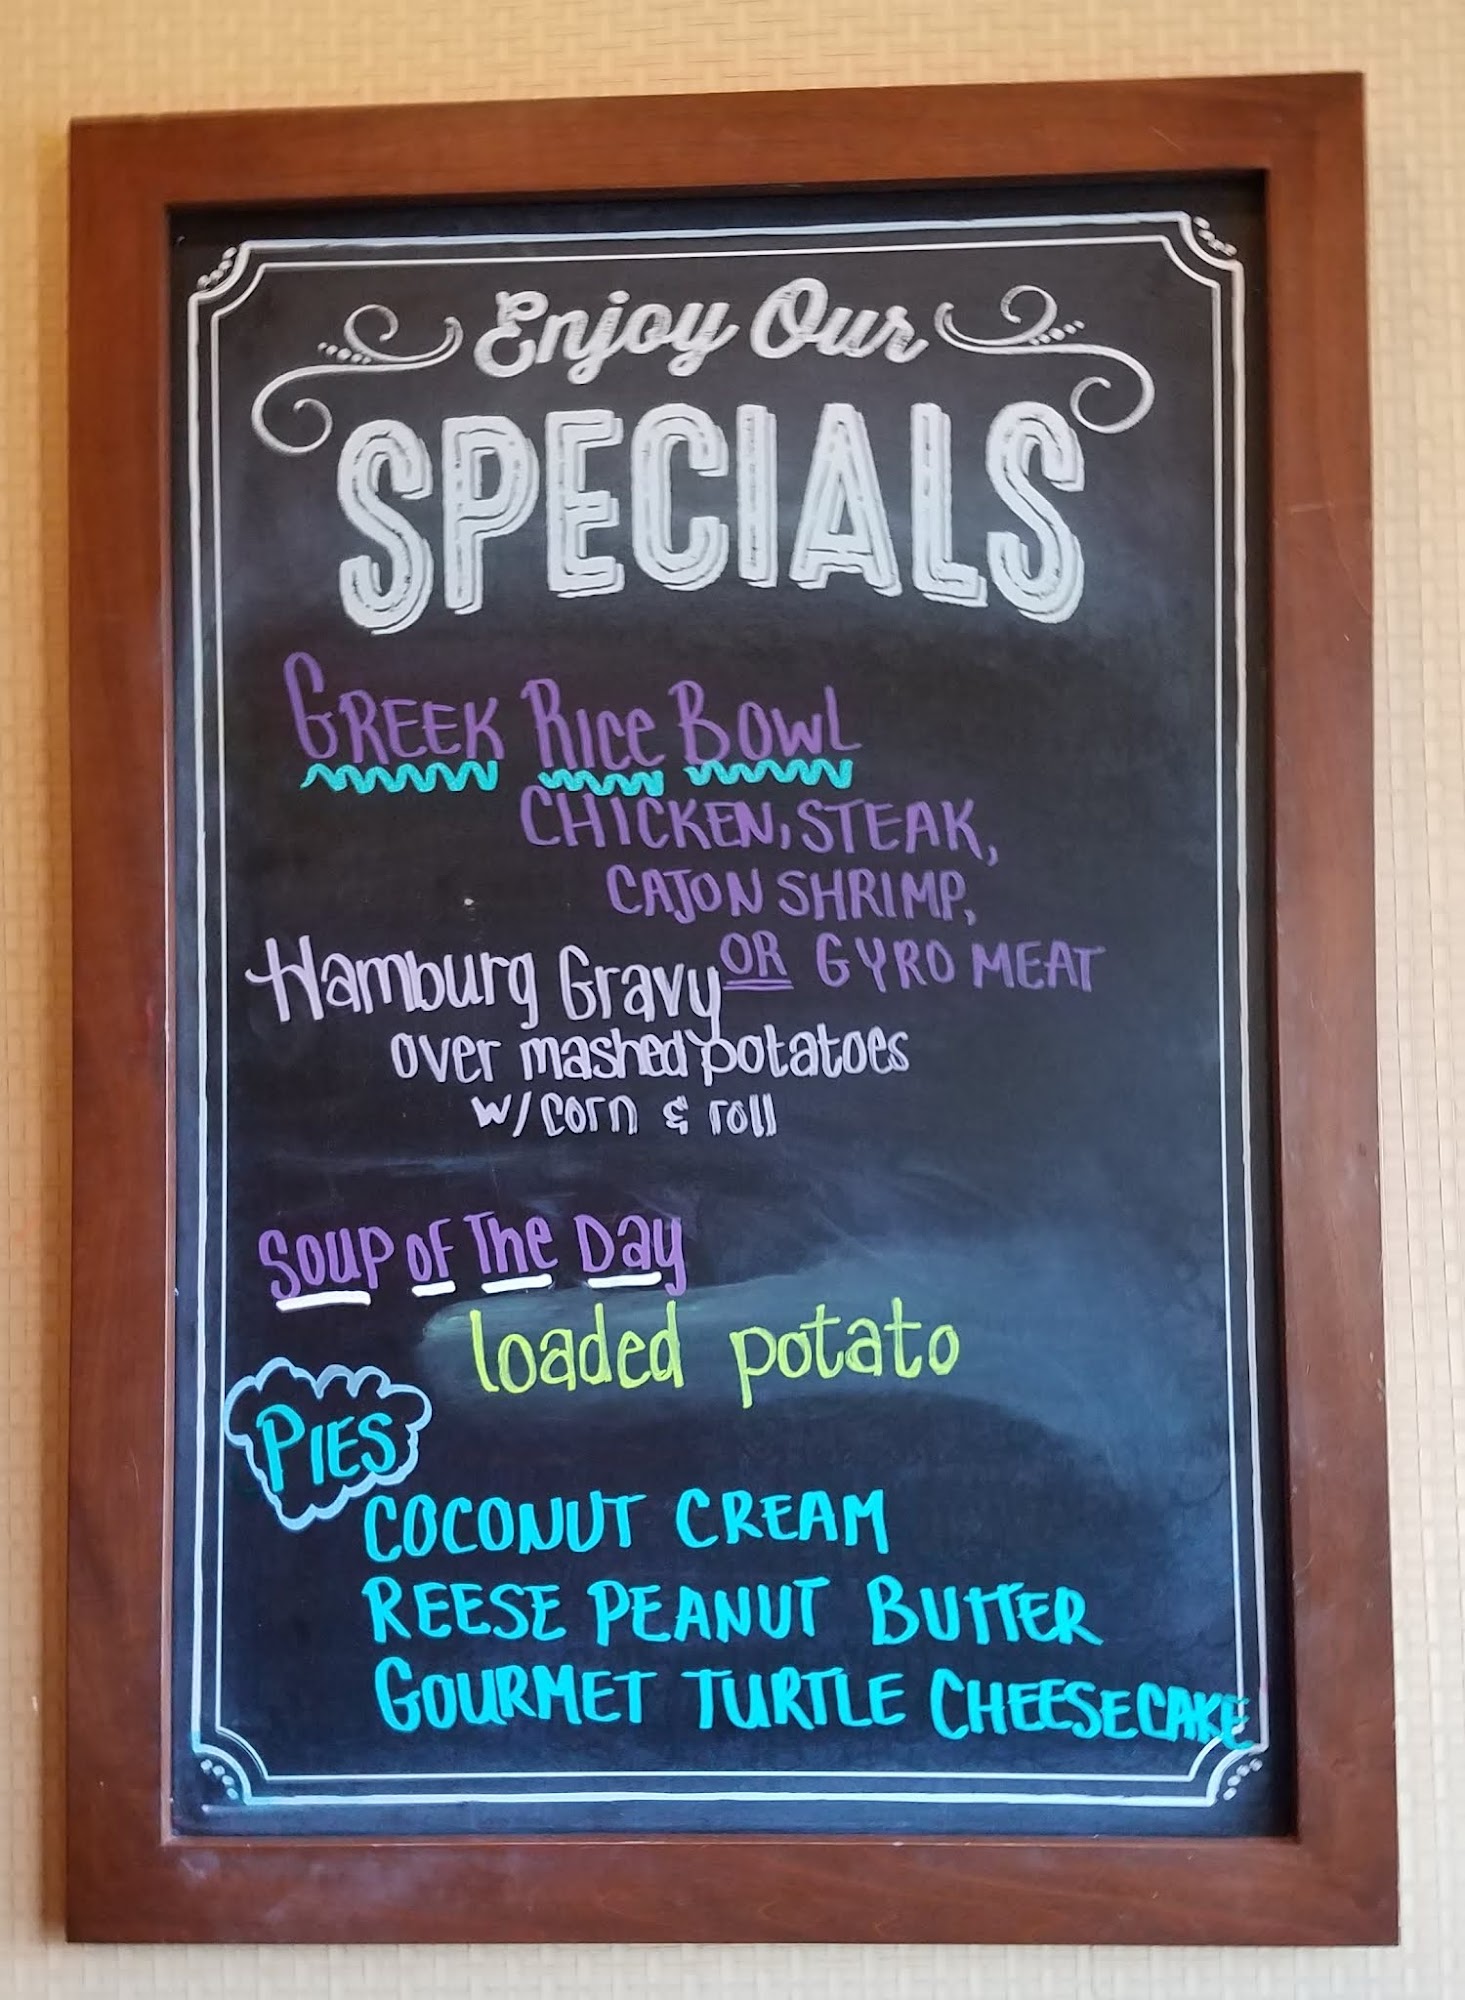 Enjoy Our
SPECIALS
GREEK RICE BOWL
CHICKEN, STEAK,
CAJON SHRIMP,
OR GYRO MEAT
Hamburg Gravy
over mashed potatoes
w/ corn & roll
Soup of The Day
loaded potato
PIES
COCONUT CREAM
REESE PEANUT BUTTER
GOURMET TURTLE CHEESECAKE